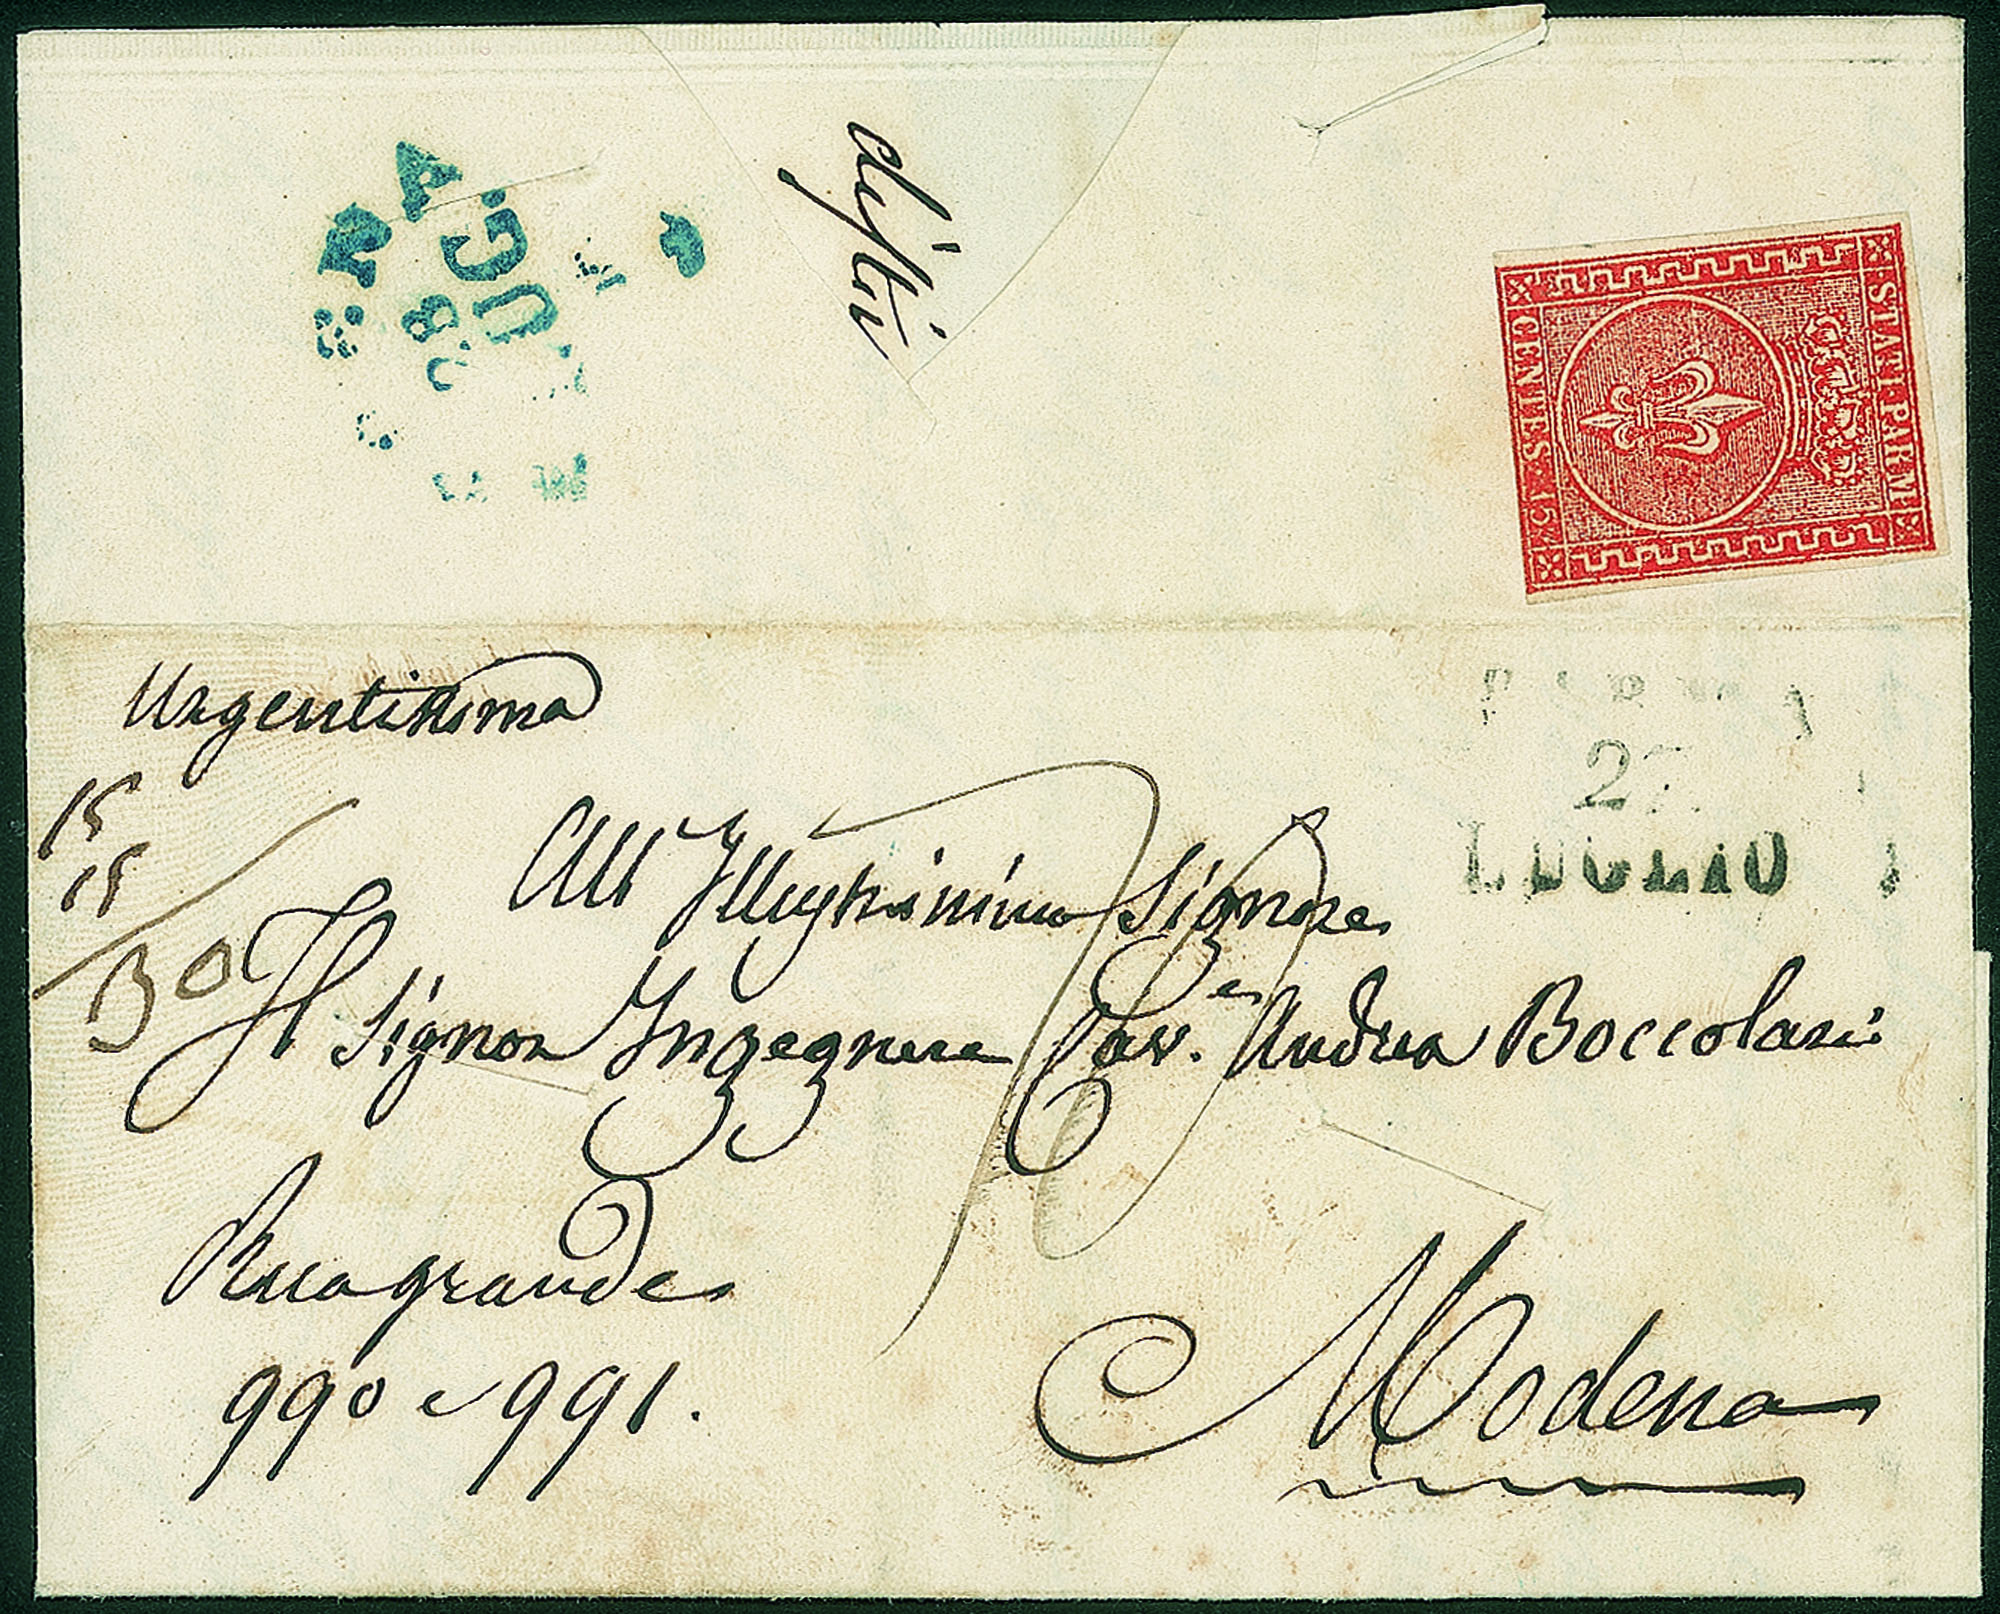 STATI PARM
CENTES. 15
UG.
Urgentissima
27
LUGLIO
15
15
30
All' Illustrissimo Signore
Il Signor Ingegnere Cav.e Andrea Boccolari
Rua grande
990 e 991.
Modena